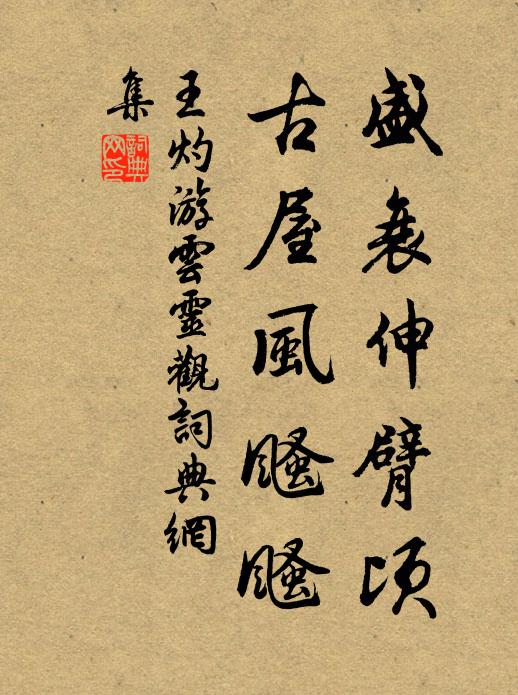 盛衰伸臂頃
古屋風颾颾
王灼游雲靈觀詞典網
集
詞典
网印